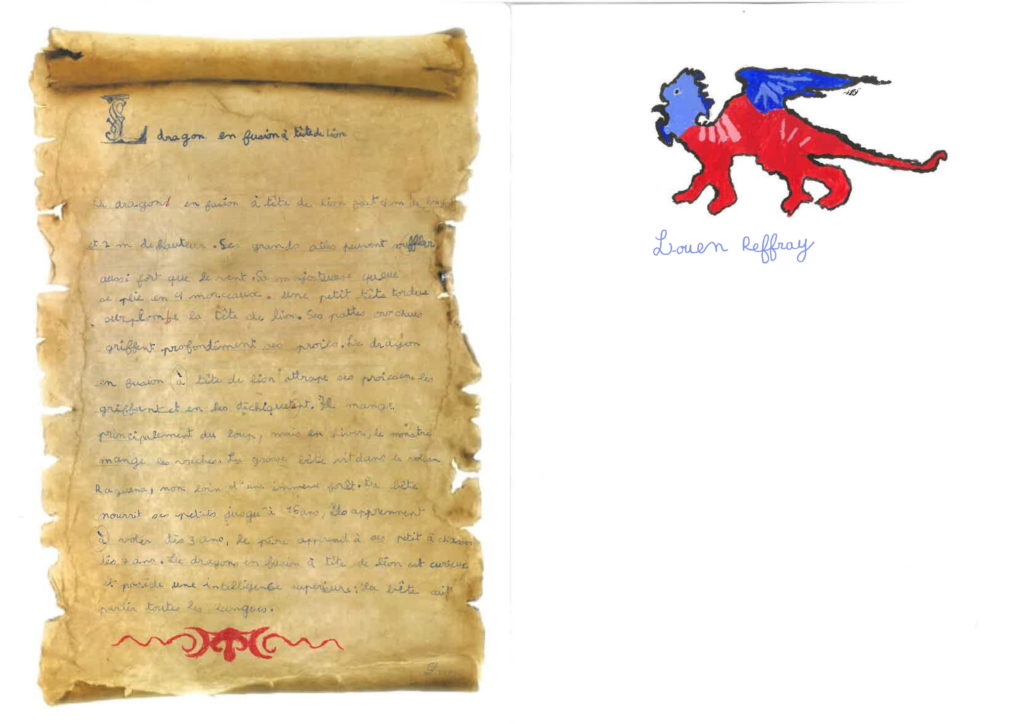 L dragon en fusion à tête de lion
Le dragon en fusion à tête de lion fait 4 m de
et 2 m de hauteur. Ses grands ailes peuvent souffler
aussi fort que le vent. Sa majestueuse queue
se plie en 4 morceaux. Une petit tête tordue
surplombe la tête de lion. Ses pattes crochues
griffent profondément ses proies. Le dragon
en fusion à tête de lion attrape ses proies en les
griffant et en les déchiquetent. Il mange
principalement du loup, mais en hiver, le monstre
mange les vaches. La grosse bête vit dans le volcan
non loin d'une immense forêt. La bête
nourrit ses petits jusqu'à 15 ans, ils apprennent
à voler dès 3 ans, le père apprend à ses petit à chasser
dès 7 ans. Le dragon en fusion à tête de lion est curieux
et possède une intelligence supérieure : la bête sait
parler toutes les langues.
Louen Reffray